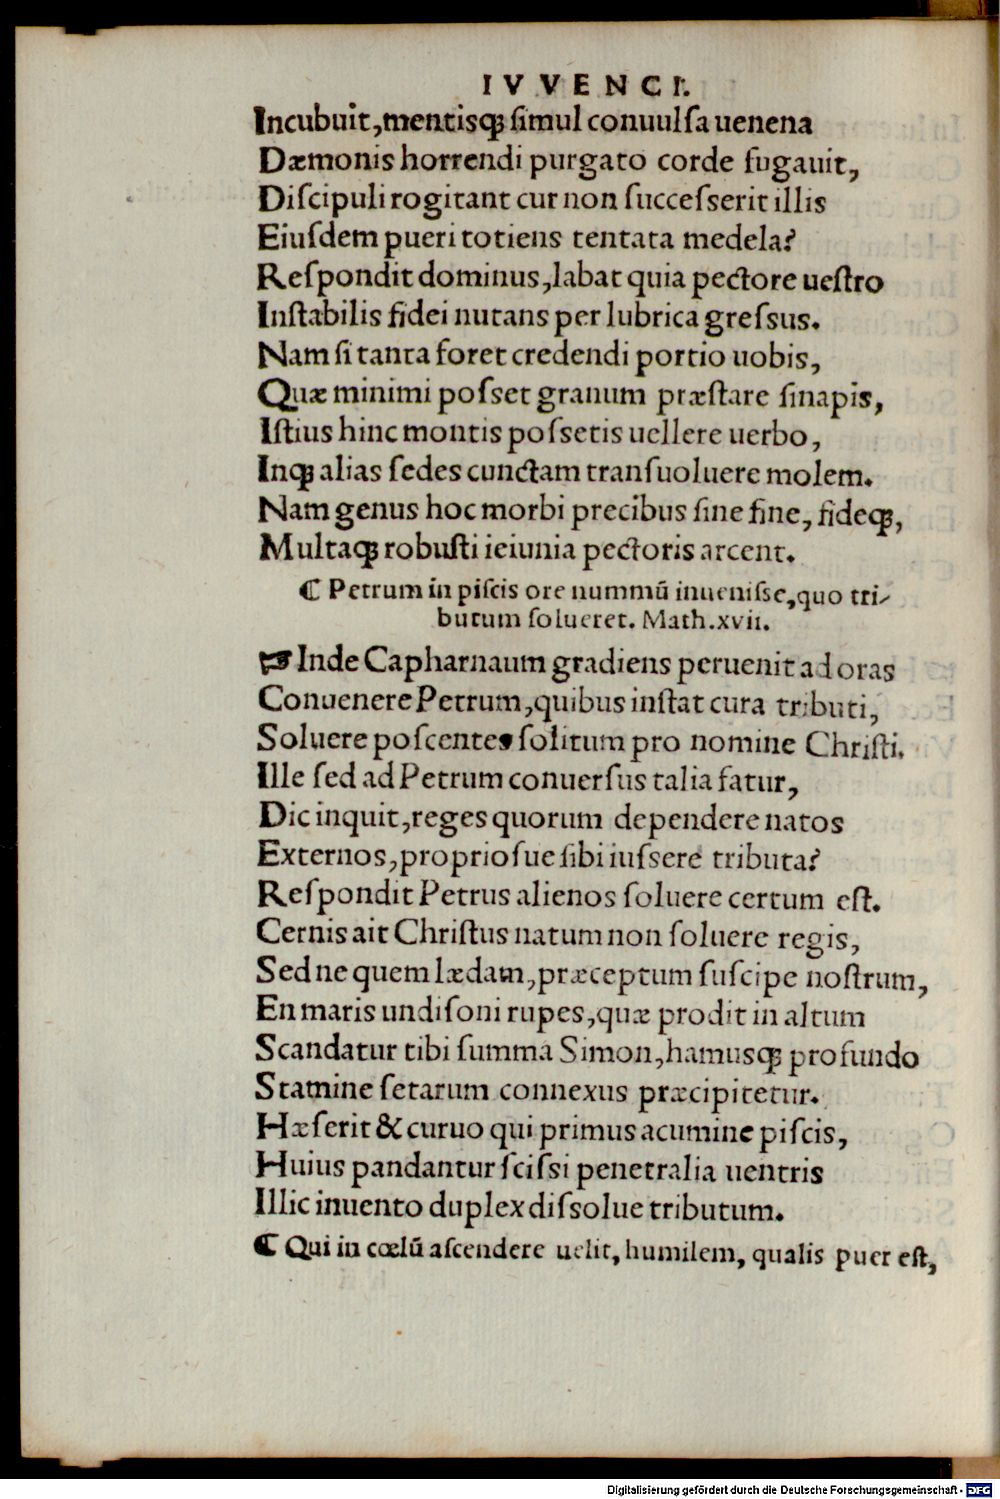 IVVENCI.
Incubuit,mentisq́ꝫ ſimul conuulſa uenena
Dæmonis horrendi purgato corde fugauit,
Diſcipuli rogitant cur non ſucceſſerit illis
Eiuſdem pueri totiens tentata medela?
Reſpondit dominus,labat quia pectore ueſtro
Inſtabilis fidei nutans per lubrica greſsus.
Nam ſi tanta foret credendi portio uobis,
Quæ minimi poſset granum præſtare ſinapis,
Iſtius hinc montis poſsetis uellere uerbo,
Inqꝫ alias ſedes cunctam tranſuoluere molem.
Nam genus hoc morbi precibus ſine fine, fideqꝫ,
Multaqꝫ robuſti ieiunia pectoris arcent.
⸿ Petrum in piſcis ore nummū inueniſse,quo tri⸗
butum ſolueret. Math.xvii.
☞ Inde Capharnaum gradiens peruenit ad oras
Conuenere Petrum,quibus inſtat cura tributi,
Soluere poſcentes ſolitum pro nomine Chriſti.
Ille ſed ad Petrum conuerſus talia fatur,
Dic inquit,reges quorum dependere natos
Externos,proprioſue ſibi iuſsere tributa?
Reſpondit Petrus alienos ſoluere certum eſt.
Cernis ait Chriſtus natum non ſoluere regis,
Sed ne quem lædam,præceptum ſuſcipe noſtrum,
En maris undiſoni rupes,quæ prodit in altum
Scandatur tibi ſumma Simon,hamusqꝫ profundo
Stamine ſetarum connexus præcipitetur.
Hæſerit & curuo qui primus acumine piſcis,
Huius pandantur ſciſsi penetralia uentris
Illic inuento duplex diſsolue tributum.
⸿ Qui in cœlū aſcendere uelit, humilem, qualis puer eſt,
Digitalisierung gefördert durch die Deutsche Forschungsgemeinschaft - DFG